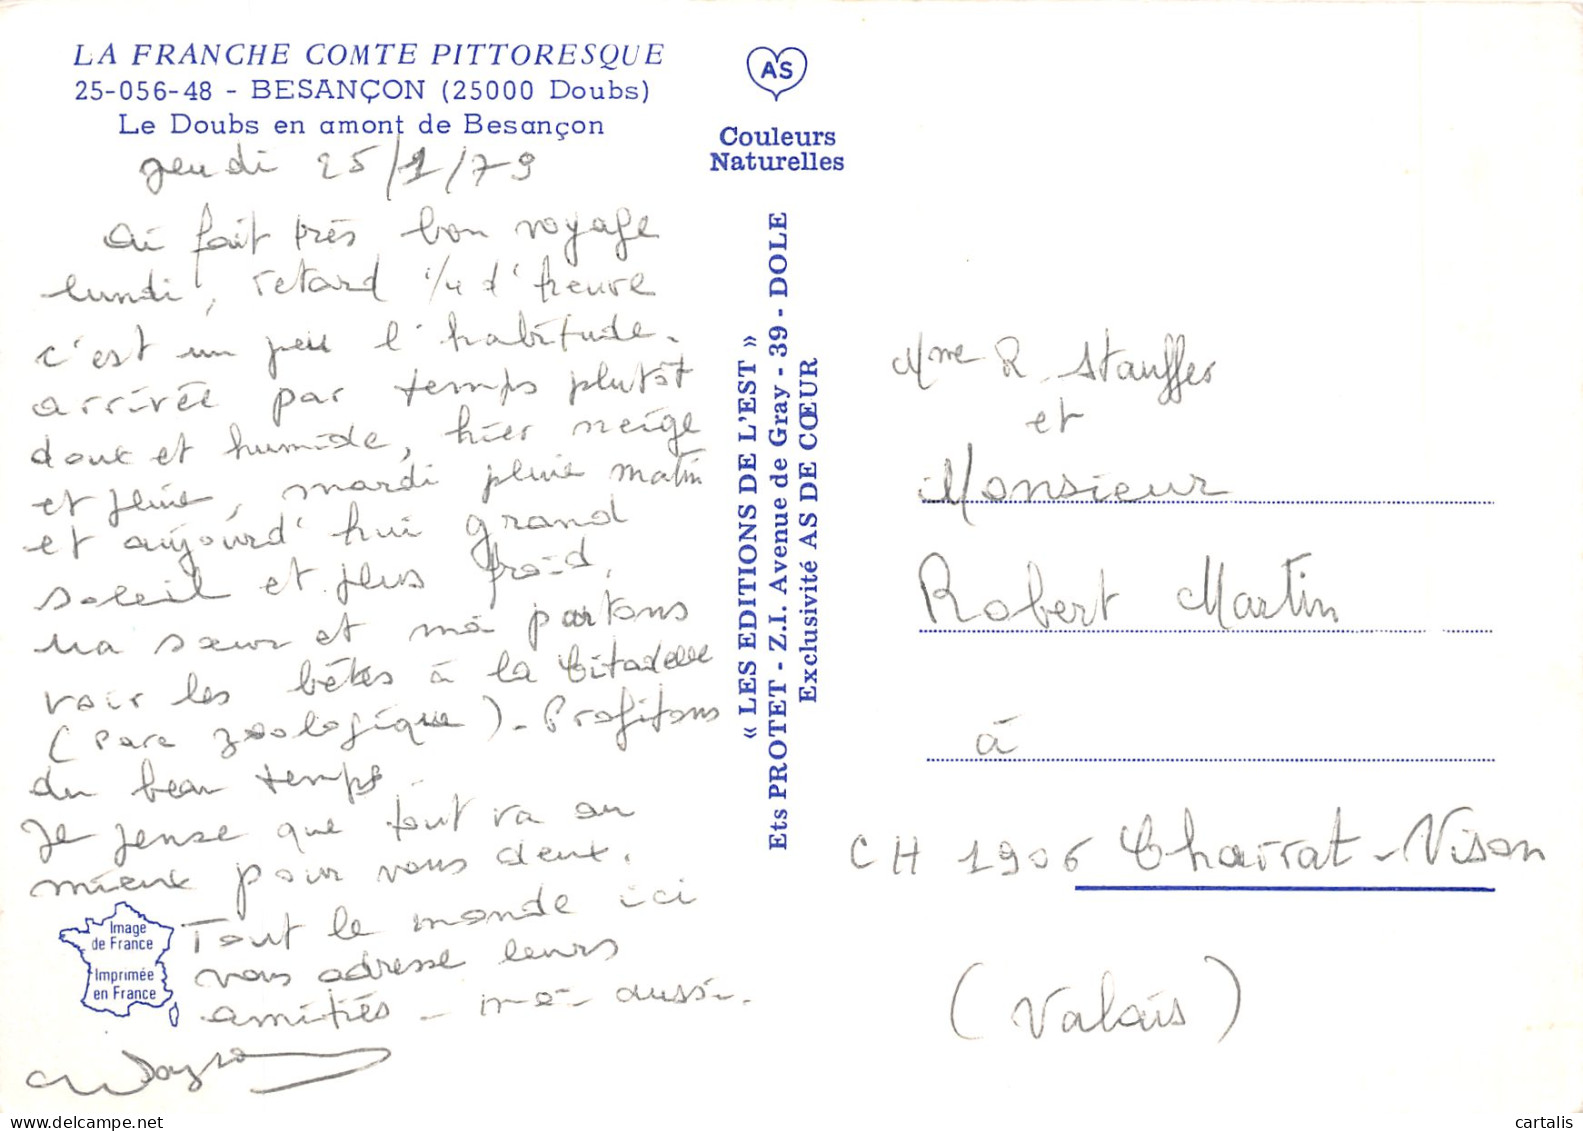 LA FRANCHE COMTE PITTORESQUE
25-056-48 - BESANÇON (25000 Doubs)
Le Doubs en amont de Besançon
jeudi 25/1/79
ai fait très bon voyage
lundi, retard 1/4 d'heure
c'est un peu l'habitude.
arrivée par temps plutôt
doux et humide, hier neige
et pluie, mardi pluie matin
et aujourd'hui grand
soleil et plus froid.
Ma sœur et moi partons
voir les bêtes à la Citadelle
(Parc zoologique) - Profitons
du beau temps.
Je pense que tout va au
mieux pour vous deux.
Tout le monde ici
vous adresse leurs
amitiés - moi aussi.
Image
de France
Imprimée
en France
AS
Couleurs
Naturelles
« LES EDITIONS DE L'EST »
Ets PROTET - Z.I. Avenue de Gray - 39 - DOLE
Exclusivité AS DE CŒUR
Mme R. Stauffer
et
Monsieur
Robert Martin
à
CH 1906 Charrat-Vison
(Valais)
delcampe.net
cartalis